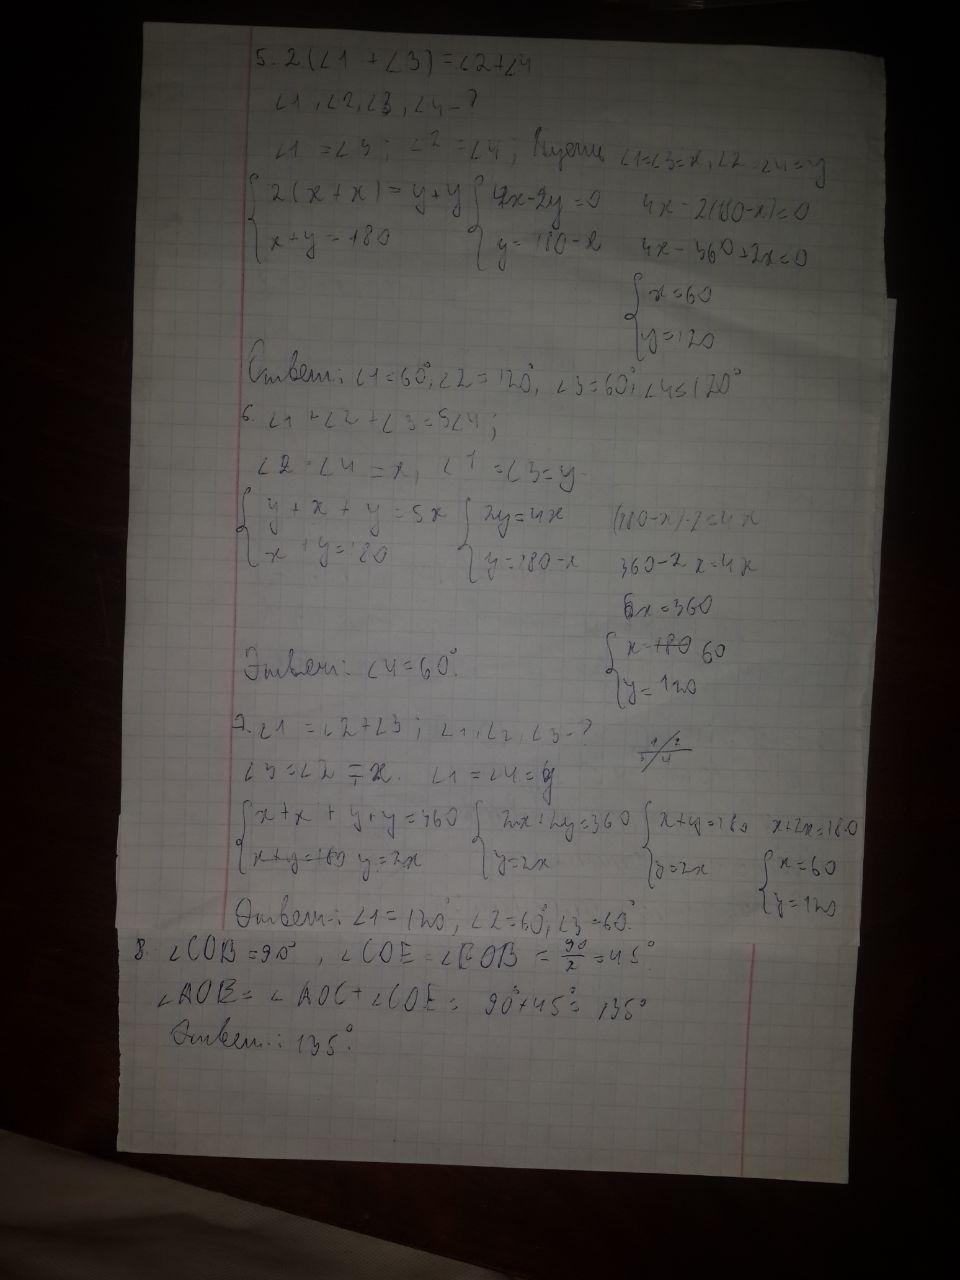 5. 2(∠1 + ∠3) = ∠2+∠4
∠1, ∠2, ∠3, ∠4 - ?
∠1 = ∠3; ∠2 = ∠4; Пусть ∠1=∠3=x, ∠2=∠4=y
{ 2(x+x) = y+y { 4x-2y=0 4x-2(180-x)=0
x+y=180 y=180-x 4x-360+2x=0
{ x=60
y=120
Ответ: ∠1=60°, ∠2=120°, ∠3=60°, ∠4=120°
6. ∠1+∠2+∠3=5∠4;
∠2=∠4=x, ∠1=∠3=y
{ y+x+y=5x { 2y=4x (180-x)·2=4x
x+y=180 y=180-x 360-2x=4x
6x=360
{ x=180 60
y=120
Ответ: ∠4=60°.
7. ∠1=∠2+∠3; ∠1, ∠2, ∠3-? 1 2
3 4
∠3=∠2=x. ∠1=∠4=y
{ x+x+y+y=360 { 2x+2y=360 { x+y=180 x+2x=180
x+y=180 y=2x y=2x y=2x { x=60
y=120
Ответ: ∠1=120°, ∠2=60°, ∠3=60°.
8. ∠COB=90°, ∠COE=∠EOB=90/2=45°.
∠AOE=∠AOC+∠COE=90°+45°=135°
Ответ: 135°.